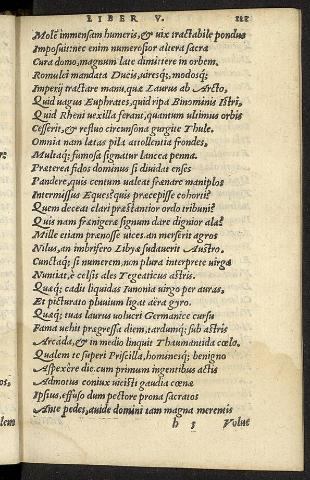 LIBER V. 111
Molē immensam humeris, & uix tractabile pondus
Imposuit: nec enim numerosior altera sacra
Cura domo, magnum late dimittere in orbem
Romulei mandata Ducis, uiresq;, modosq;
Imperij tractare manu, quæ Laurus ab Arcto,
Quid uagus Euphrates, quid ripa Binominis Istri,
Quid Rheni uexilla ferant, quantum ultimus orbis
Cesserit, & refluo circunsona gurgite Thule.
Omnia nam lætas pila attollentia frondes,
Multaq; famosa signatur lancea penna.
Præterea fidos dominus si diuidat enses
Pandere, quis centum ualeat frænare maniplos
Intermissus Eques? quis præcepisse cohorti?
Quem deceat clari præstantior ordo tribuni?
Quis nam frænigeræ signum dare dignior alæ?
Mille etiam prænosse uices, an merserit agros
Nilus, an imbrifero Libyæ sudauerit Austro.
Cunctaq; si numerem, non plura interprete uirga
Nuntiat, è celsis ales Tegeaticus astris.
Quæq; cadit liquidas Iunonia uirgo per auras,
Et picturato pluuium ligat aëra gyro.
Quæq; tuas laurus uolucri Germanice cursu
Fama uehit prægressa diem, tardumq; sub astris
Arcada, & in medio linquit Thaumantida cœlo.
Qualem te superi Priscilla, hominesq; benigno
Aspexêre die. cum primum ingentibus actis
Admotus coniux uicisti gaudia cœnæ
Ipsius, effuso dum pectore prona sacratos
Ante pedes, auide domini tam magna merentis
h 5 Volue